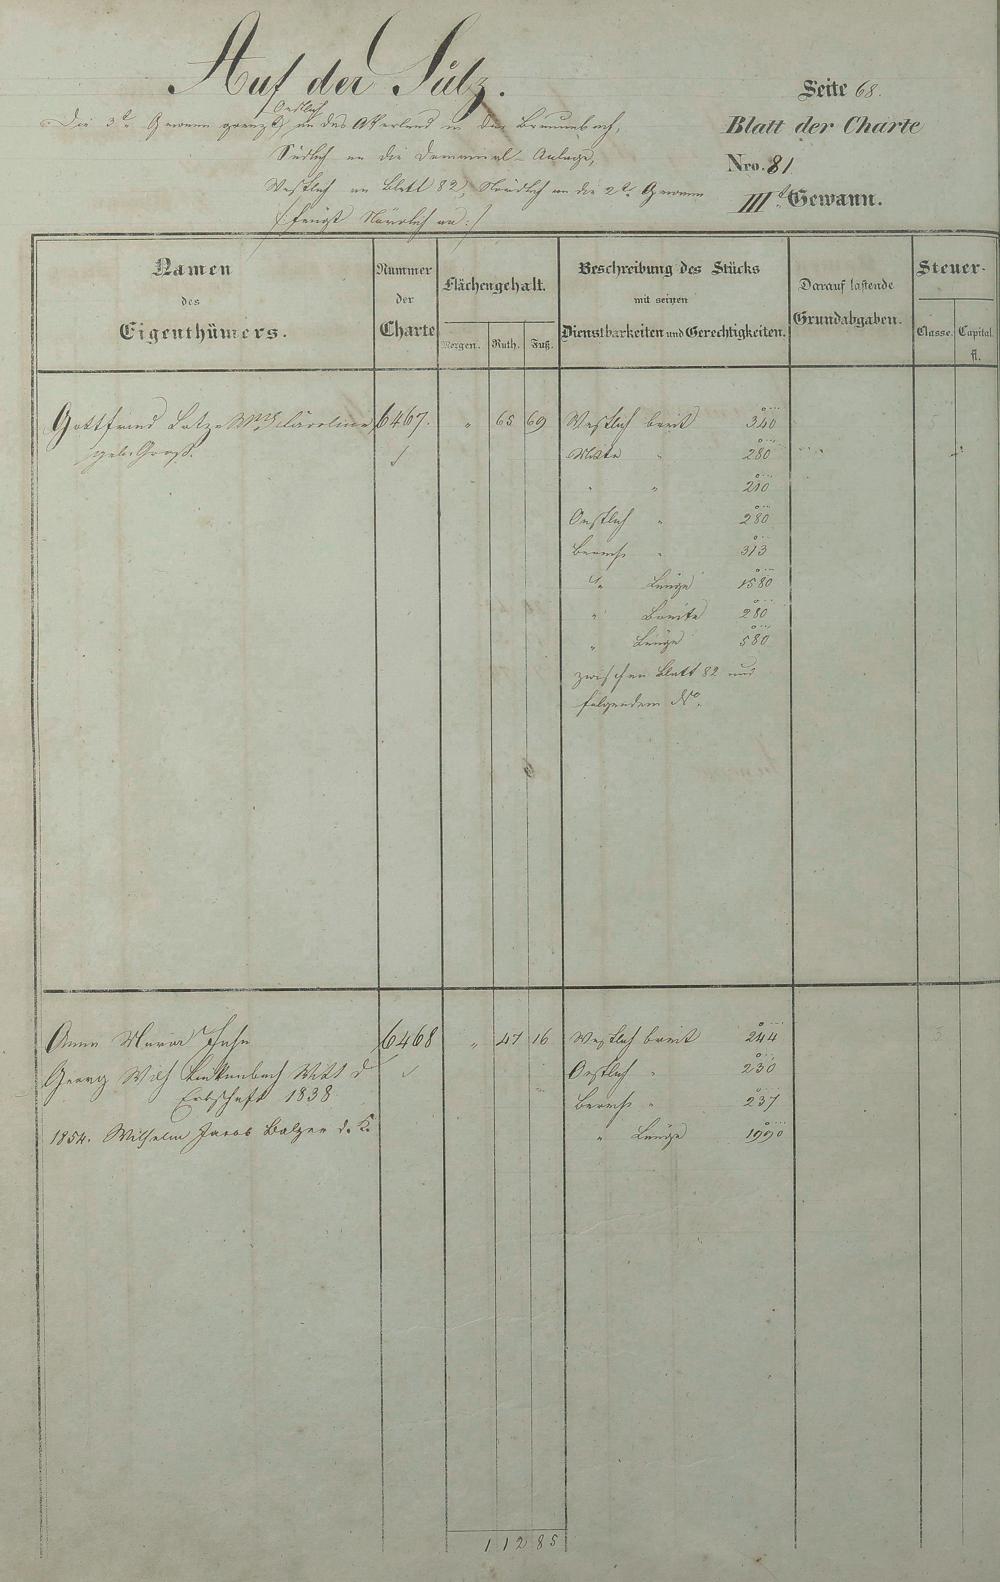 Auf der Sülz.
Seite 68.
Die 3te Gewann grenzt Oestlich an das Akerland in der Brunnbach,
Blatt der Charte
Südlich an die Dominial-Anlage,
Nro. 81
Westlich an Blatt 82, Nördlich an die 2te Gewann
IIIte Gewann.
/:fängt Nördlich an:/
Namen
des
Eigenthümers.
Nummer
der
Charte
Flächengehalt.
Morgen. Ruth. Fuß.
Beschreibung des Stücks
mit seinen
Dienstbarkeiten und Gerechtigkeiten.
Darauf lastende
Grundabgaben.
Steuer-
Classe. Capital.
fl.
Gottfried Caroline 6467. " 65 69 Westlich breit 340
geb. Groß. Mitte " 280
" " 210
Oestlich " 280
Berech. " 313
" Länge 1580
" Breite 280
" Länge 580
zwischen Blatt 82 und
folgendem No.
Anna Maria 6468 " 47 16 Westlich breit 244
Georg Wilh Linkenbach Witt d Oestlich " 230
Erbschaft 1838 Berech. " 237
1854. Wilhelm Jacob Balzer d. K. " Länge 1990
1 12 85